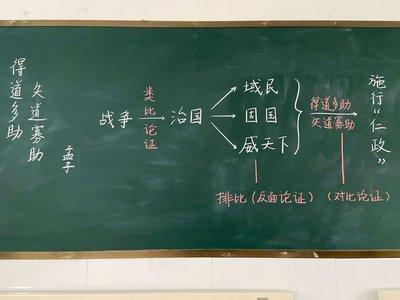 得道多助
失道寡助
孟子
战争
类比论证
治国
域民
固国
威天下
得道多助
失道寡助
施行“仁政”
排比(反面论证)
(对比论证)